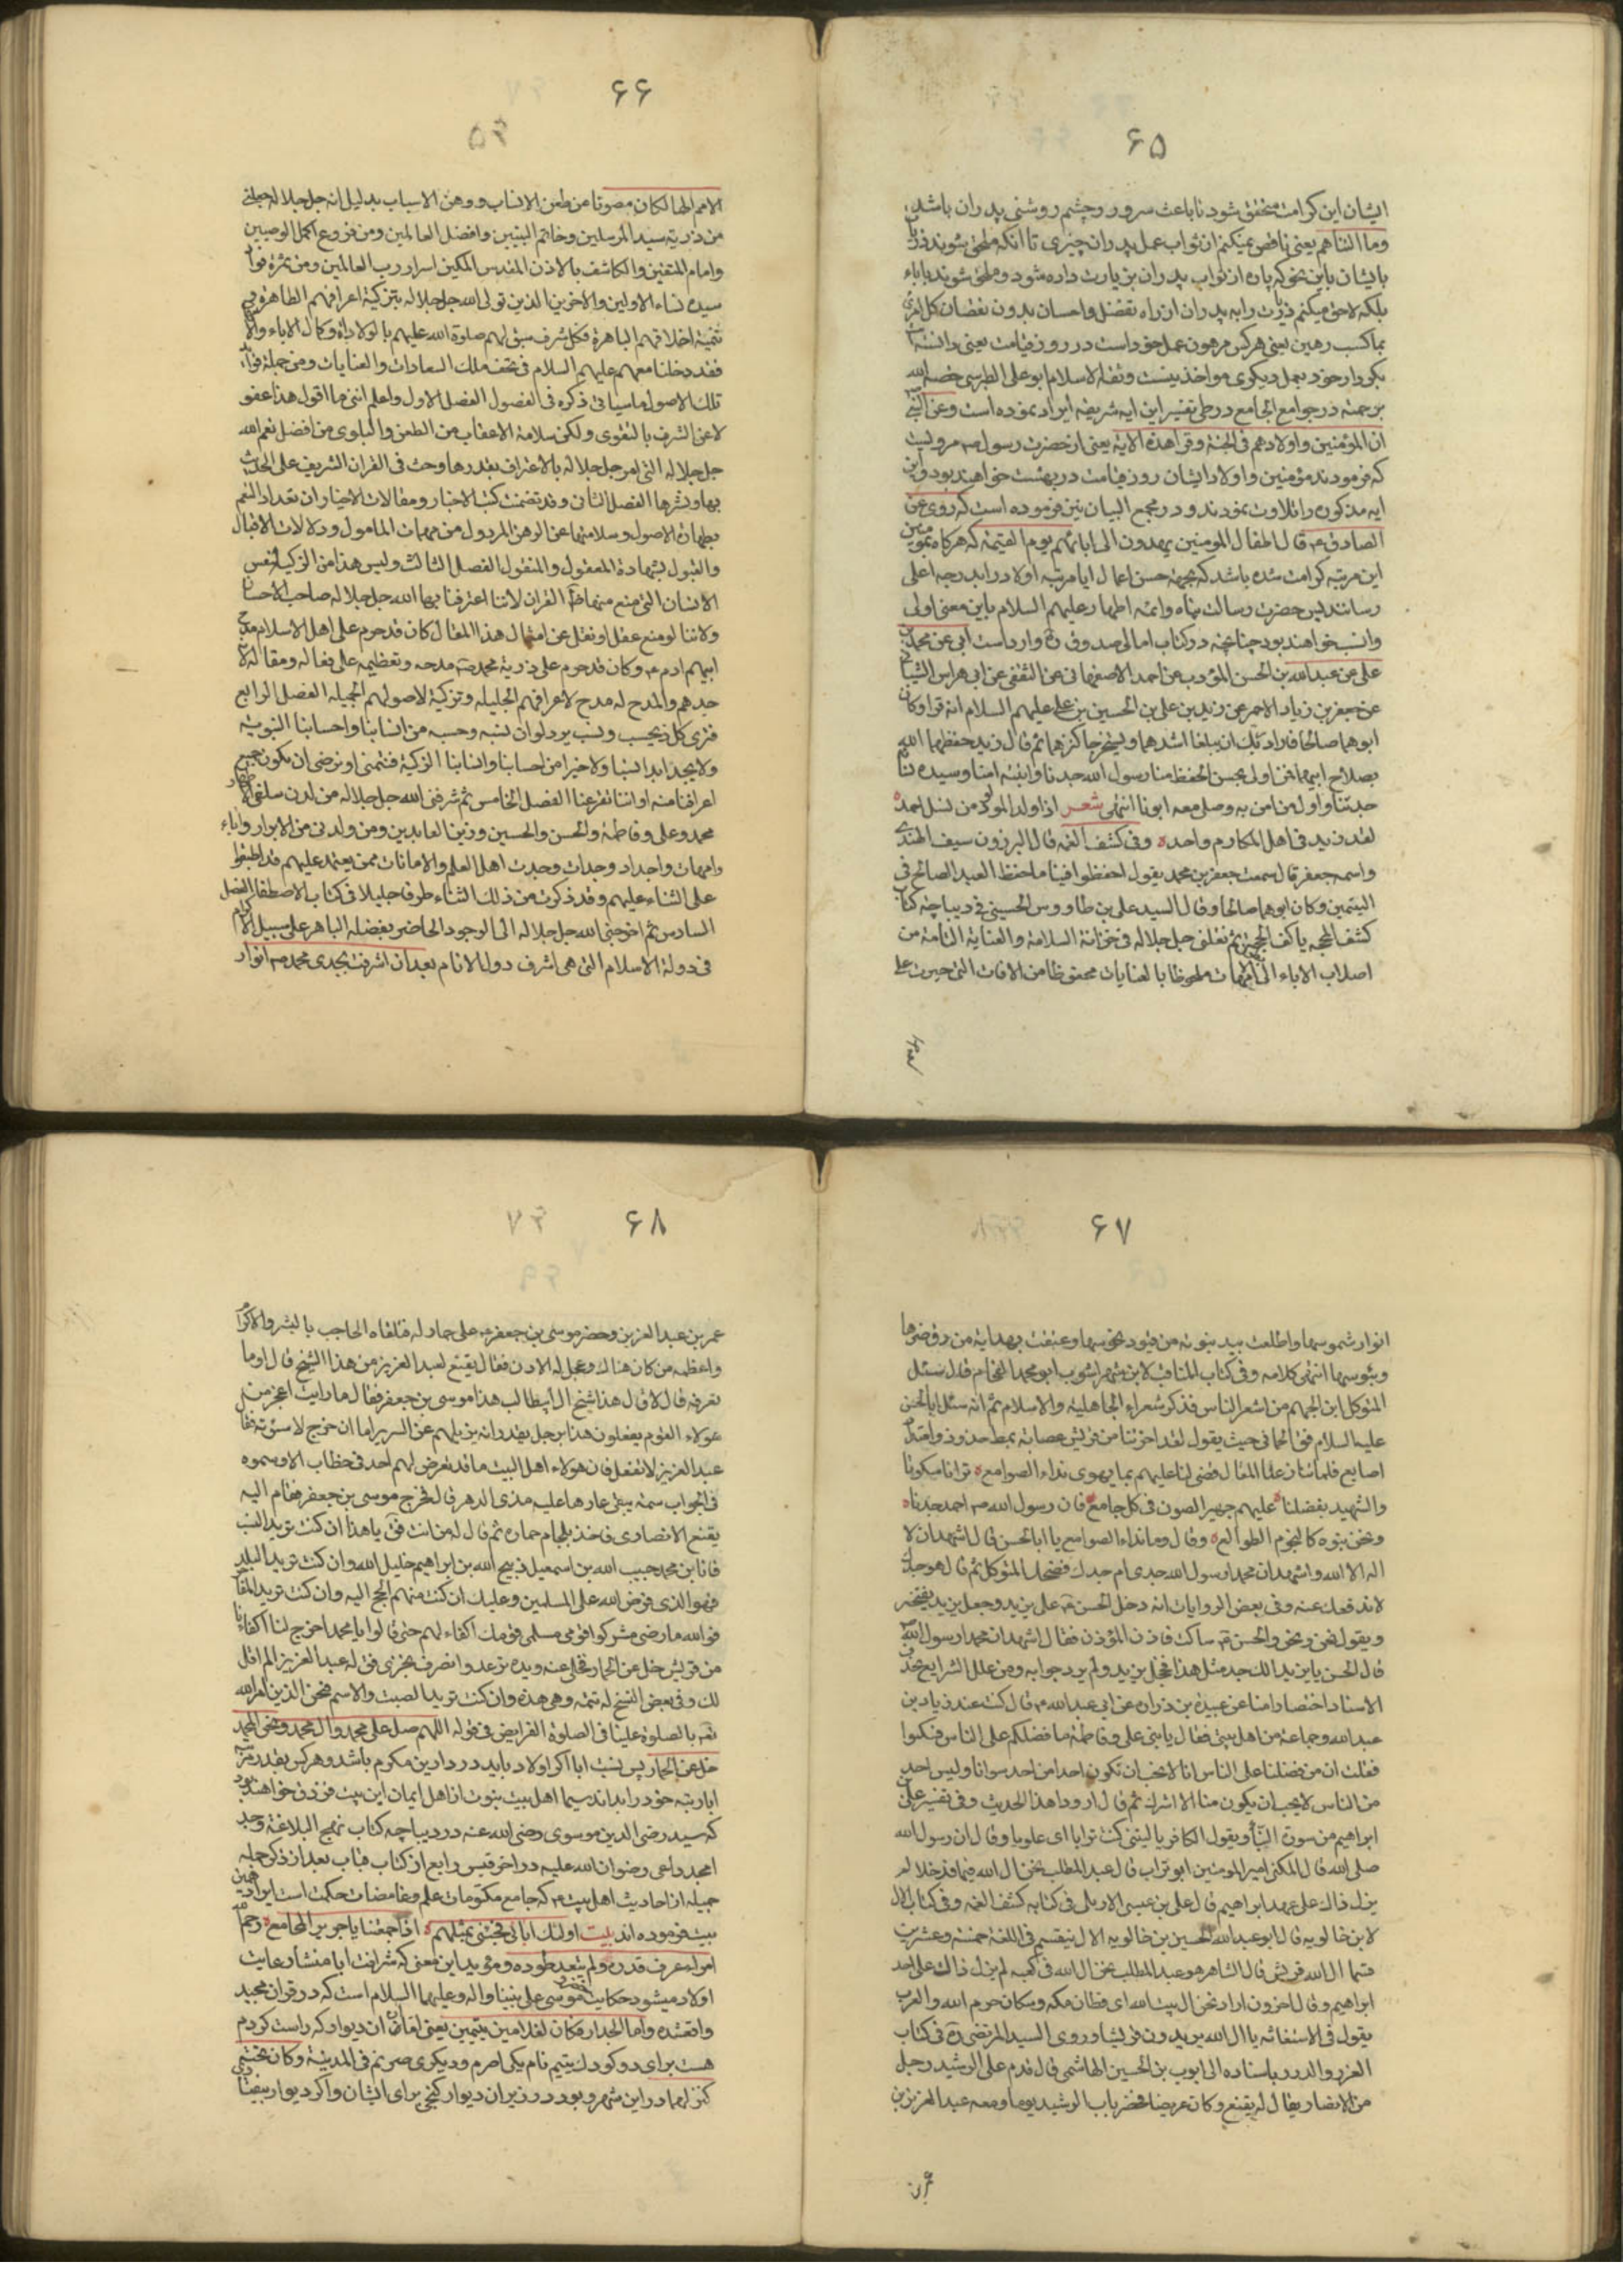 ۶۵
ایشان این کرامت متحقق شود تا باعث سرور و چشم روشنی پدران باشد
وما التناهم یعنی ناقص نمیکنم از ثواب عمل پدران چیزی تا آنکه ملحق شوند ذریات
بایشان باین نحو که پاره از ثواب پدران بذریات داده شود و ملحق شوند بآباء
بلکه لاحق میکنم ذریت را به پدران از راه تفضل و احسان بدون نقصان کل امرئ
بما کسب رهین یعنی هر کس مرهون عمل خود است در روز قیامت یعنی
بکردار خود بعمل دیگری مواخذ نیست وثقة الاسلام ابو علی الطبرسی خصه الله
برحمته در جوامع الجامع در طی تفسیر این آیه شریفه ایراد نموده است وعن النبی
ان المؤمنین واولادهم فی الجنة وقرأ هذه الآیة یعنی از حضرت رسول ص مرویست
که فرمودند مؤمنین و اولاد ایشان روز قیامت در بهشت خواهند بود و این
آیه مذکوره را تلاوت نمودند و در مجمع البیان نیز فرموده است که روی عن
الصادق ع قال اطفال المومنین یهدون الی ابائهم یوم القیمة که هرگاه مؤمنین
این مرتبه کرامت شده باشد که بجهة حسن اعمال آبا مرتبه اولاد را بدرجه اعلی
رسانند پس حضرت رسالت پناه و ائمه اطهار علیهم السلام باین معنی اولی
وانسب خواهند بود چنانچه در کتاب امالی صدوق ره وارد است ابی عن محمد بن
علی عن عبدالله بن الحسن المؤدب عن احمد الاصفهانی عن الثقفی عن ابی هراس الشیبانی
عن جعفر بن زیاد الاحمر عن زید بن علی بن الحسین بن علی علیهم السلام انه قرأ وکان
ابوهما صالحا فاراد ربک ان یبلغا اشدهما ویستخرجا کنزهما ثم قال زید حفظهما الله
بصلاح ابیهما فمن اولی بحسن الحفظ منا رسول الله جدنا وابنته امنا وسیدة نساء
جدتنا واول من امن به وصلی معه ابونا انتهی شعر اذا ولد المولود من نسل احمد
لقد زید فی اهل المکارم واحد وفی کشف الغمه قال البرزون سیف الهندی
واسمه جعفر قال سمعت جعفر بن محمد یقول احفظوا فینا ما حفظ العبد الصالح فی
الیتیمین وکان ابوهما صالحا وقال السید علی بن طاووس الحسینی فی دیباچة کتاب
کشف المحجه یا کف الحجه ثم نقلنی جل جلاله فی خزانة السلامة والعنایة التامة من
اصلاب الاباء الی امهات ملحوظا بالعنایات محفوظا من الافات التی جرت علی
۶۶
الامم الها لکان مصونا من طعن الانساب ووهن الاسباب بدلیل انه جل جلاله جعلنی
من ذریة سید المرسلین وخاتم النبیین وافضل العالمین ومن فروع اکمل الوصیین
وامام المتقین والکاشف بالاذن المقدس المکین اسرار رب العالمین ومن ثمرة فؤاد
سیدة نساء الاولین والاخرین الذین تولی الله جل جلاله بتزکیة اعراقهم الطاهرة و
تتمیة اخلاقهم الباهرة فکل شرف سبق لهم صلوة الله علیهم بالولادة وکمال الاباء وال
فقد دخلنا معهم علیهم السلام فی تحف ملک السعادات والعنایات ومن جملة فوائد
تلک الاصول ما سیاتی ذکره فی الفصول الفصل الاول واعلم اننی ما اقول هذا عفو
لاعن الشرف بالتقوی ولکن سلامة الاعقاب من الطعن والبلوی من افضل نعم الله
جل جلاله التی امر جل جلاله بالاعتراف بقدرها وحث فی القران الشریف علی الحدیث
بها ونشرها الفصل الثانی وقد تضمنت کتب الاخبار ومقالات الاخیار ان تعداد النعم
بطهارة الاصول وسلامتها عن الوهن المرذول من مهمات المامول ودلالات الاقبال
والقبول بشهادة المعقول والمنقول الفصل الثالث ولیس هذا من الزکیة لنفس
الانسان التی منع منها ظاهر القران لاننا اعترفنا بها الله جل جلاله صاحب الاحسان
ولاننا لو منع عقل او نقل عن امثال هذا المقال کان قد حرم علی اهل الاسلام مدح
ابیهم ادم ع وکان قد حرم علی ذریة محمد ص مدحه وتعظیمه علی فعاله ومقاله
جدهم والمدح له مدح لاعراقهم الجلیله وتزکیة لاصولهم الجمیله الفصل الرابع
فنری کل ذی حسب ونسب یود لو ان نسبه وحسبه من انسابنا واحسابنا النبویه
ولا یجد ابدا لنا ولا خیرا من احسابنا وانسابنا الزکیة فنتمنی او نرضی ان یکون جمیع
اعراقنا منه او اننا تفرعنا الفصل الخامس ثم شرفنی الله جل جلاله من لدن سلفی الاطهار
محمد وعلی وفاطمة والحسن والحسین وزین العابدین ومن ولدنی من الابرار واباء
وامهات واجداد وجدات وجدت اهل العلم والامانات ممن یعتمد علیهم قد اطبقوا
علی الثناء علیهم وقد ذکرت من ذلک الثناء طرفا جلیلا فی کتاب الاصطفاء الفصل
السادس ثم اخرجنی الله جل جلاله الی الوجود الحاضر بفضله الباهر علی سبیل الاکرام
فی دولة الاسلام التی هی اشرف دول الانام بعد ان اشرقت بجدی محمد ص انوار
۶۷
انوار شموسها واطلعت بید نبوته من قیود نحوسها وعتقت بهدایة من رق ضرها
وبئوسها انتهی کلامه وفی کتاب المناقب لابن شهر اشوب ابو محمد الفحام قال سئل
المتوکل ابن الجهم من اشعر الناس فذکر شعراء الجاهلیة والاسلام ثم انه سئل ابا الحسن
علیه السلام فقال الحمانی حیث یقول لقد فاخرتنا من قریش عصابة بمط خدود وامتداد
اصابع فلما تنازعنا المقال قضی لنا علیهم بما یهوی نداء الصوامع ترانا سکوتا
والشهید بفضلنا علیهم جهیر الصوت فی کل جامع فان رسول الله ص احمد جدنا
ونحن بنوه کالنجوم الطوالع وقال وما نداء الصوامع یا ابا الحسن قال اشهد ان لا
اله الا الله واشهد ان محمدا رسول الله جدی ام جدک فضحک المتوکل ثم قال هو جدک
لا ندفعک عنه وفی بعض الروایات انه دخل الحسن ع علی یزید وجعل یزید یفتخر
ویقول نحن ونحن والحسن ع ساکت فاذن المؤذن فقال اشهد ان محمدا رسول الله
قال الحسن یا یزید الک جد مثل هذا فخجل یزید ولم یرد جوابه ومن علل الشرایع بحذف
الاسناد اختصارا منا عن عبید بن زراره عن ابی عبدالله ع قال کنت عند زیاد بن
عبدالله وجماعة من اهل بیتی فقال یا بنی علی وفاطمة ما فضلکم علی الناس فسکتوا
فقلت ان من فضلنا علی الناس انا لا نحب ان نکون احدا من احد سوانا ولیس احد
من الناس لا یحب ان یکون منا الا اشرک ثم قال اروو هذا الحدیث وفی تفسیر علی بن
ابراهیم من سورة النبأ ویقول الکافر یا لیتنی کنت ترابا ای علویا وقال ان رسول الله
صلی الله قال المکنی امیر المومنین ابو تراب قال عبد المطلب نحن ال الله فیما قد خلا لم
یزل ذاک علی عهد ابراهیم قال علی بن عیسی الاربلی فی کتابه کشف الغمه وفی کتاب الال
لابن خالویه قال ابو عبدالله الحسین بن خالویه الال ینقسم فی اللغة خمسة وعشرین
قسما ال الله قریش قال الشاعر هو عبد المطلب نحن ال الله فی کعبه لم یزل ذاک علی عهد
ابراهیم وقال اخرون اراد نحن ال بیت الله ای قطان مکه وسکان حرم الله والعرب
یقول فی الاستغاثه یا ال الله یریدون قریشا وروی السید المرتضی ره فی کتاب
الغرر والدرر باسناده الی ایوب بن الحسین الهاشمی قال قدم علی الرشید رجل
من الانصار یقال له یقنع وکان عریضا فحضر باب الرشید یوما ومعه عبد العزیز بن
۶۸
عمر بن عبد العزیز وحضر موسی بن جعفر ع علی حمار له فتلقاه الحاجب بالبشر والاکرام
واعظمه من کان هناک وعجل له الاذن فقال یقنع لعبد العزیز من هذا الشیخ قال اوما
تعرفه قال لا قال هذا شیخ ال ابیطالب هذا موسی بن جعفر فقال ما رایت اعجز من
هؤلاء القوم یفعلون هذا برجل یقدر انه یزیلهم عن السریر اما ان خرج لاسوئنه فقال
عبد العزیز لا تفعل فان هؤلاء اهل البیت ما قد تعرض لهم احد فی خطاب الا وسموه
فی الجواب سمة یبقی عارها علیه مدی الدهر قال فخرج موسی بن جعفر فقام الیه
یقنع الانصاری فاخذ بلجام حماره ثم قال له من انت فقال یا هذا ان کنت ترید النسب
فانا بن محمد حبیب الله بن اسمعیل ذبیح الله بن ابراهیم خلیل الله وان کنت ترید البلد
فهو الذی فرض الله علی المسلمین وعلیک ان کنت منهم الحج الیه وان کنت ترید المفاخرة
فوالله ما رضی مشرکوا قومی مسلمی قومک اکفاء لهم حتی قالوا یا محمد اخرج لنا اکفاءنا
من قریش خل عن الحمار فخلی عنه ویده ترعد وانصرف بخزی فقال له عبد العزیز الم اقل
لک وفی بعض النسخ له تتمه وهی هذه وان کنت ترید الصیت والاسم فنحن الذین امر الله
تعم بالصلوة علینا فی الصلوة الفرایض فی قوله اللهم صل علی محمد وال محمد ونحن ال محمد
خل عن الحمار پس نسبت ابا اگر اولاد بابد در دارین مکرم باشد و هر کس بقدر مرتبه
ابا رتبه خود را بداند سیما اهل بیت نبوت از اهل ایمان این بیت فرزند خواهند بود
که سید رضی الدین موسوی رضی الله عنه در دیباچه کتاب نهج البلاغة وجد
امجد داعی رضوان الله علیه در اخر قبس رابع از کتاب قبسات بعد از ذکر جمله
جمیله از احادیث اهل بیت ع که جامع مکتومات علم وغامضات حکمت است ایراد این
بیت فرموده اند بیت اولئک ابائی فجئنی بمثلهم اذا جمعتنا یا جریر المجامع رحم الله
امرأ عرف قدره ولم یتعد طوره و مؤید این معنی که شرافت ابا منشأ رعایت
اولاد میشود حکایت خضر و موسی علی نبینا واله وعلیهما السلام است که در قران مجید
واقعشده واما الجدار فکان لغلامین یتیمین یعنی اما ان دیوار که راست کردم
هست برای دو کودک یتیم نام یکی اصرم و دیگری صریم فی المدینة وکان تحته
کنز لهما در این شهر و بود در زیر ان دیوار گنجی برای ایشان و اگر دیوار بیفتد